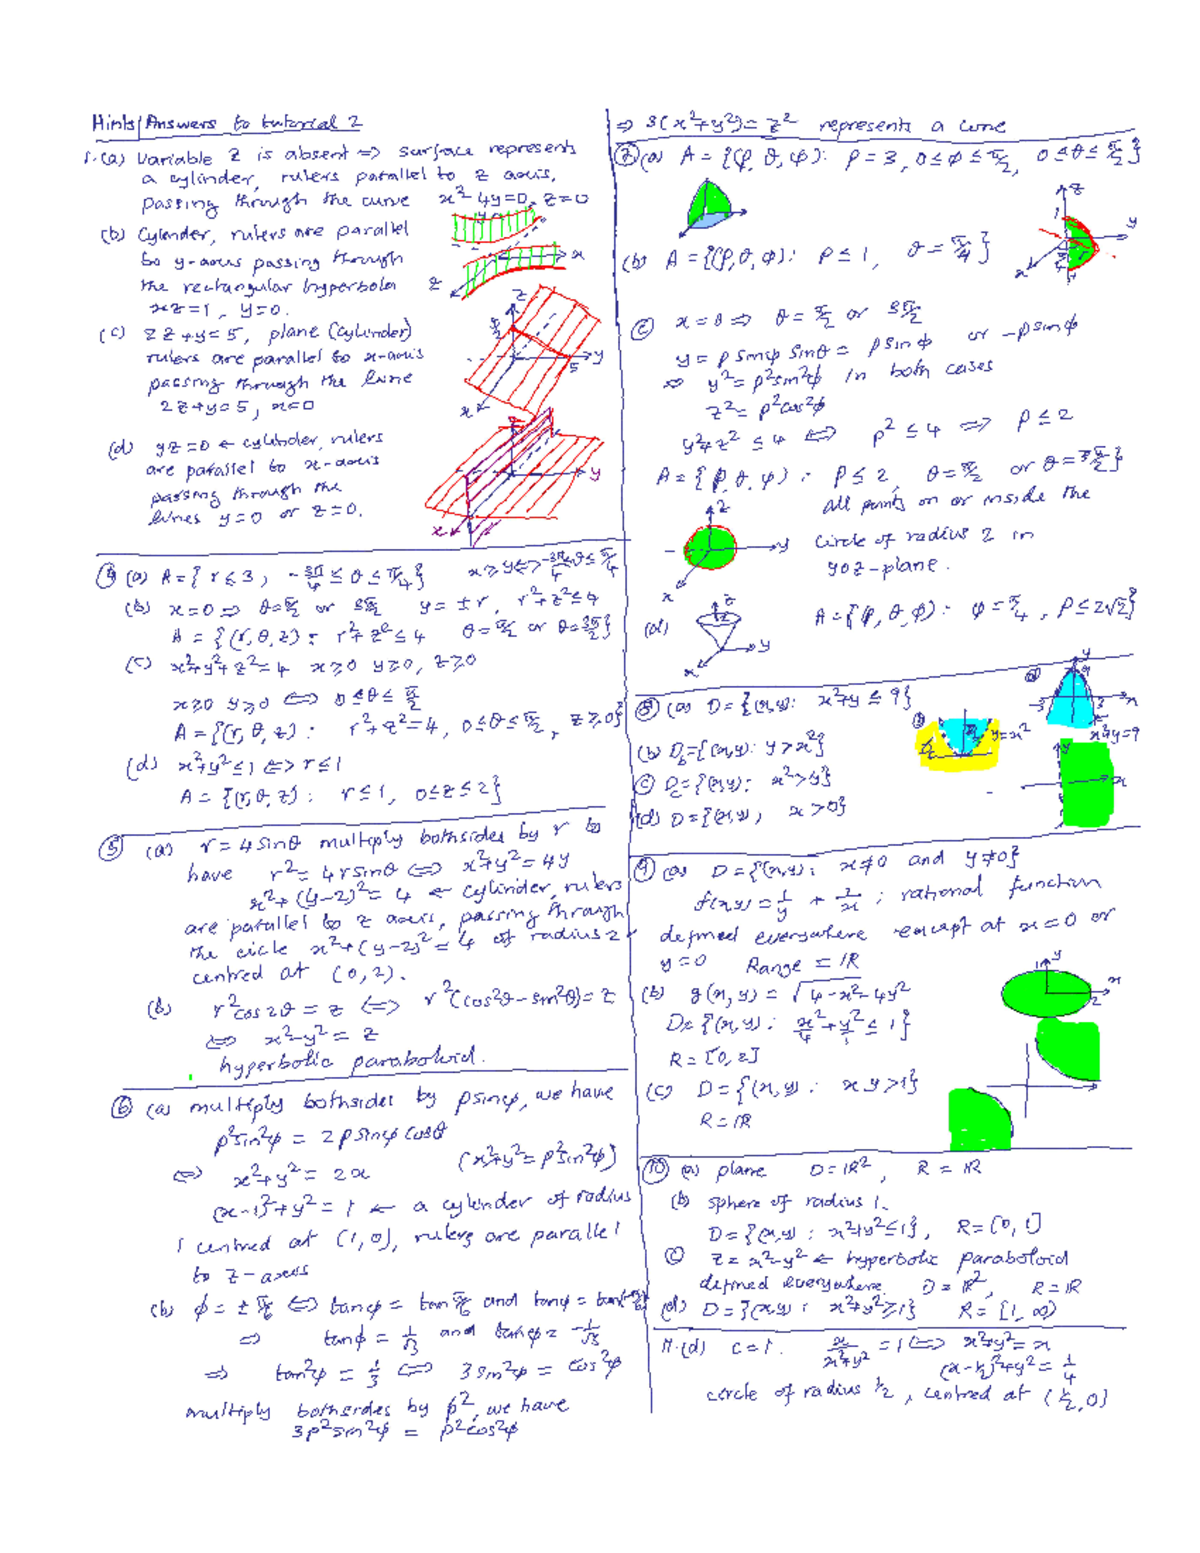 Hints/Answers to tutorial 2
1.(a) Variable z is absent ⇒ surface represents
a cylinder, rulers parallel to z axis,
passing through the curve x²-4y=0, z=0
(b) Cylinder, rulers are parallel
to y-axis passing through
the rectangular hyperbola
xz=1, y=0.
(c) 2z+y=5, plane (cylinder)
rulers are parallel to x-axis
passing through the line
2z+y=5, x=0
(d) yz=0 ← cylinder, rulers
are parallel to x-axis
passing through the
lines y=0 or z=0.
x
z
z
y
5
x
y
x
④ (a) A={ r≤3, -3π/4 ≤ θ ≤ π/4} x≥y⇔ -3π/4≤θ≤π/4
(b) x=0 ⇒ θ=π/2 or 3π/2 y=±r, r²+z²≤4
A = {(r,θ,z): r²+z²≤4 θ=π/2 or θ=3π/2}
(c) x²+y²+z²=4 x≥0 y≥0, z≥0
x≥0 y≥0 ⇔ 0≤θ≤π/2
A={(r,θ,z): r²+z²=4, 0≤θ≤π/2, z≥0}
(d) x²+y²≤1 ⇔ r≤1
A={(r,θ,z): r≤1, 0≤z≤2}
⑤ (a) r=4sinθ multiply bothsides by r to
have r²=4rsinθ ⇔ x²+y²=4y
x²+(y-2)²=4 ← cylinder, rulers
are parallel to z axis, passing through
the circle x²+(y-2)²=4 of radius 2
centred at (0,2).
(b) r²cos2θ=z ⇔ r²(cos²θ-sin²θ)=z
⇔ x²-y²=z
hyperbolic paraboloid.
⑥ (a) multiply bothsides by ρsinφ, we have
ρ²sin²φ = 2ρsinφcosθ
⇔ x²+y²=2x (x²+y²=ρ²sin²φ)
(x-1)²+y²=1 ← a cylinder of radius
1 centred at (1,0), rulers are parallel
to z-axis
(b) φ=±π/6 ⇔ tanφ=tanπ/6 and tanφ=tan(-π/6)
⇒ tanφ=1/√3 and tanφ=-1/√3
⇒ tan²φ=1/3 ⇔ 3sin²φ=cos²φ
multiply bothsides by ρ², we have
3ρ²sin²φ = ρ²cos²φ
⇒ 3(x²+y²)=z² represents a cone
⑦(a) A={(ρ,θ,φ): ρ=3, 0≤φ≤π/2, 0≤θ≤π/2}
z
1
y
x
(b) A={(ρ,θ,φ): ρ≤1, θ=π/4}
ⓒ x=0 ⇒ θ=π/2 or 3π/2
y=ρsinφsinθ=ρsinφ or -ρsinφ
⇒ y²=ρ²sin²φ in both cases
z²=ρ²cos²φ
y²+z²≤4 ⇔ ρ²≤4 ⇒ ρ≤2
A={(ρ,θ,φ): ρ≤2, θ=π/2 or θ=3π/2}
all points on or inside the
circle of radius 2 in
yoz-plane.
z
y
x
(d) A={(ρ,θ,φ): φ=π/4, ρ≤2√2}
z
2
y
x
⑧ (a) D={(x,y): x²+y≤9}
(b) D={(x,y): y>x²}
ⓒ D={(x,y): x²>y}
(d) D={(x,y), x>0}
y
9
-3
3
x
x²+y=9
y=x²
y
x
⑨ (a) D={(x,y): x≠0 and y≠0}
f(x,y)=1/y + 2/x; rational function
defined everywhere except at x=0 or
y=0 Range=ℝ
(b) g(x,y)=√4-x²-4y²
D={(x,y): x²/4+y²/1≤1}
R=[0,2]
1
y
x
2
(c) D={(x,y): xy>1}
R=ℝ
⑩ (a) plane D=ℝ², R=ℝ
(b) sphere of radius 1.
D={(x,y): x²+y²≤1}, R=[0,1]
ⓒ z=x²-y² ← hyperbolic paraboloid
defined everywhere. D=ℝ², R=ℝ
(d) D={(x,y): x²+y²≥1} R=[1,∞)
11.(d) c=1. x/x²+y²=1 ⇔ x²+y²=x
(x-½)²+y²=1/4
circle of radius ½, centred at (½,0)